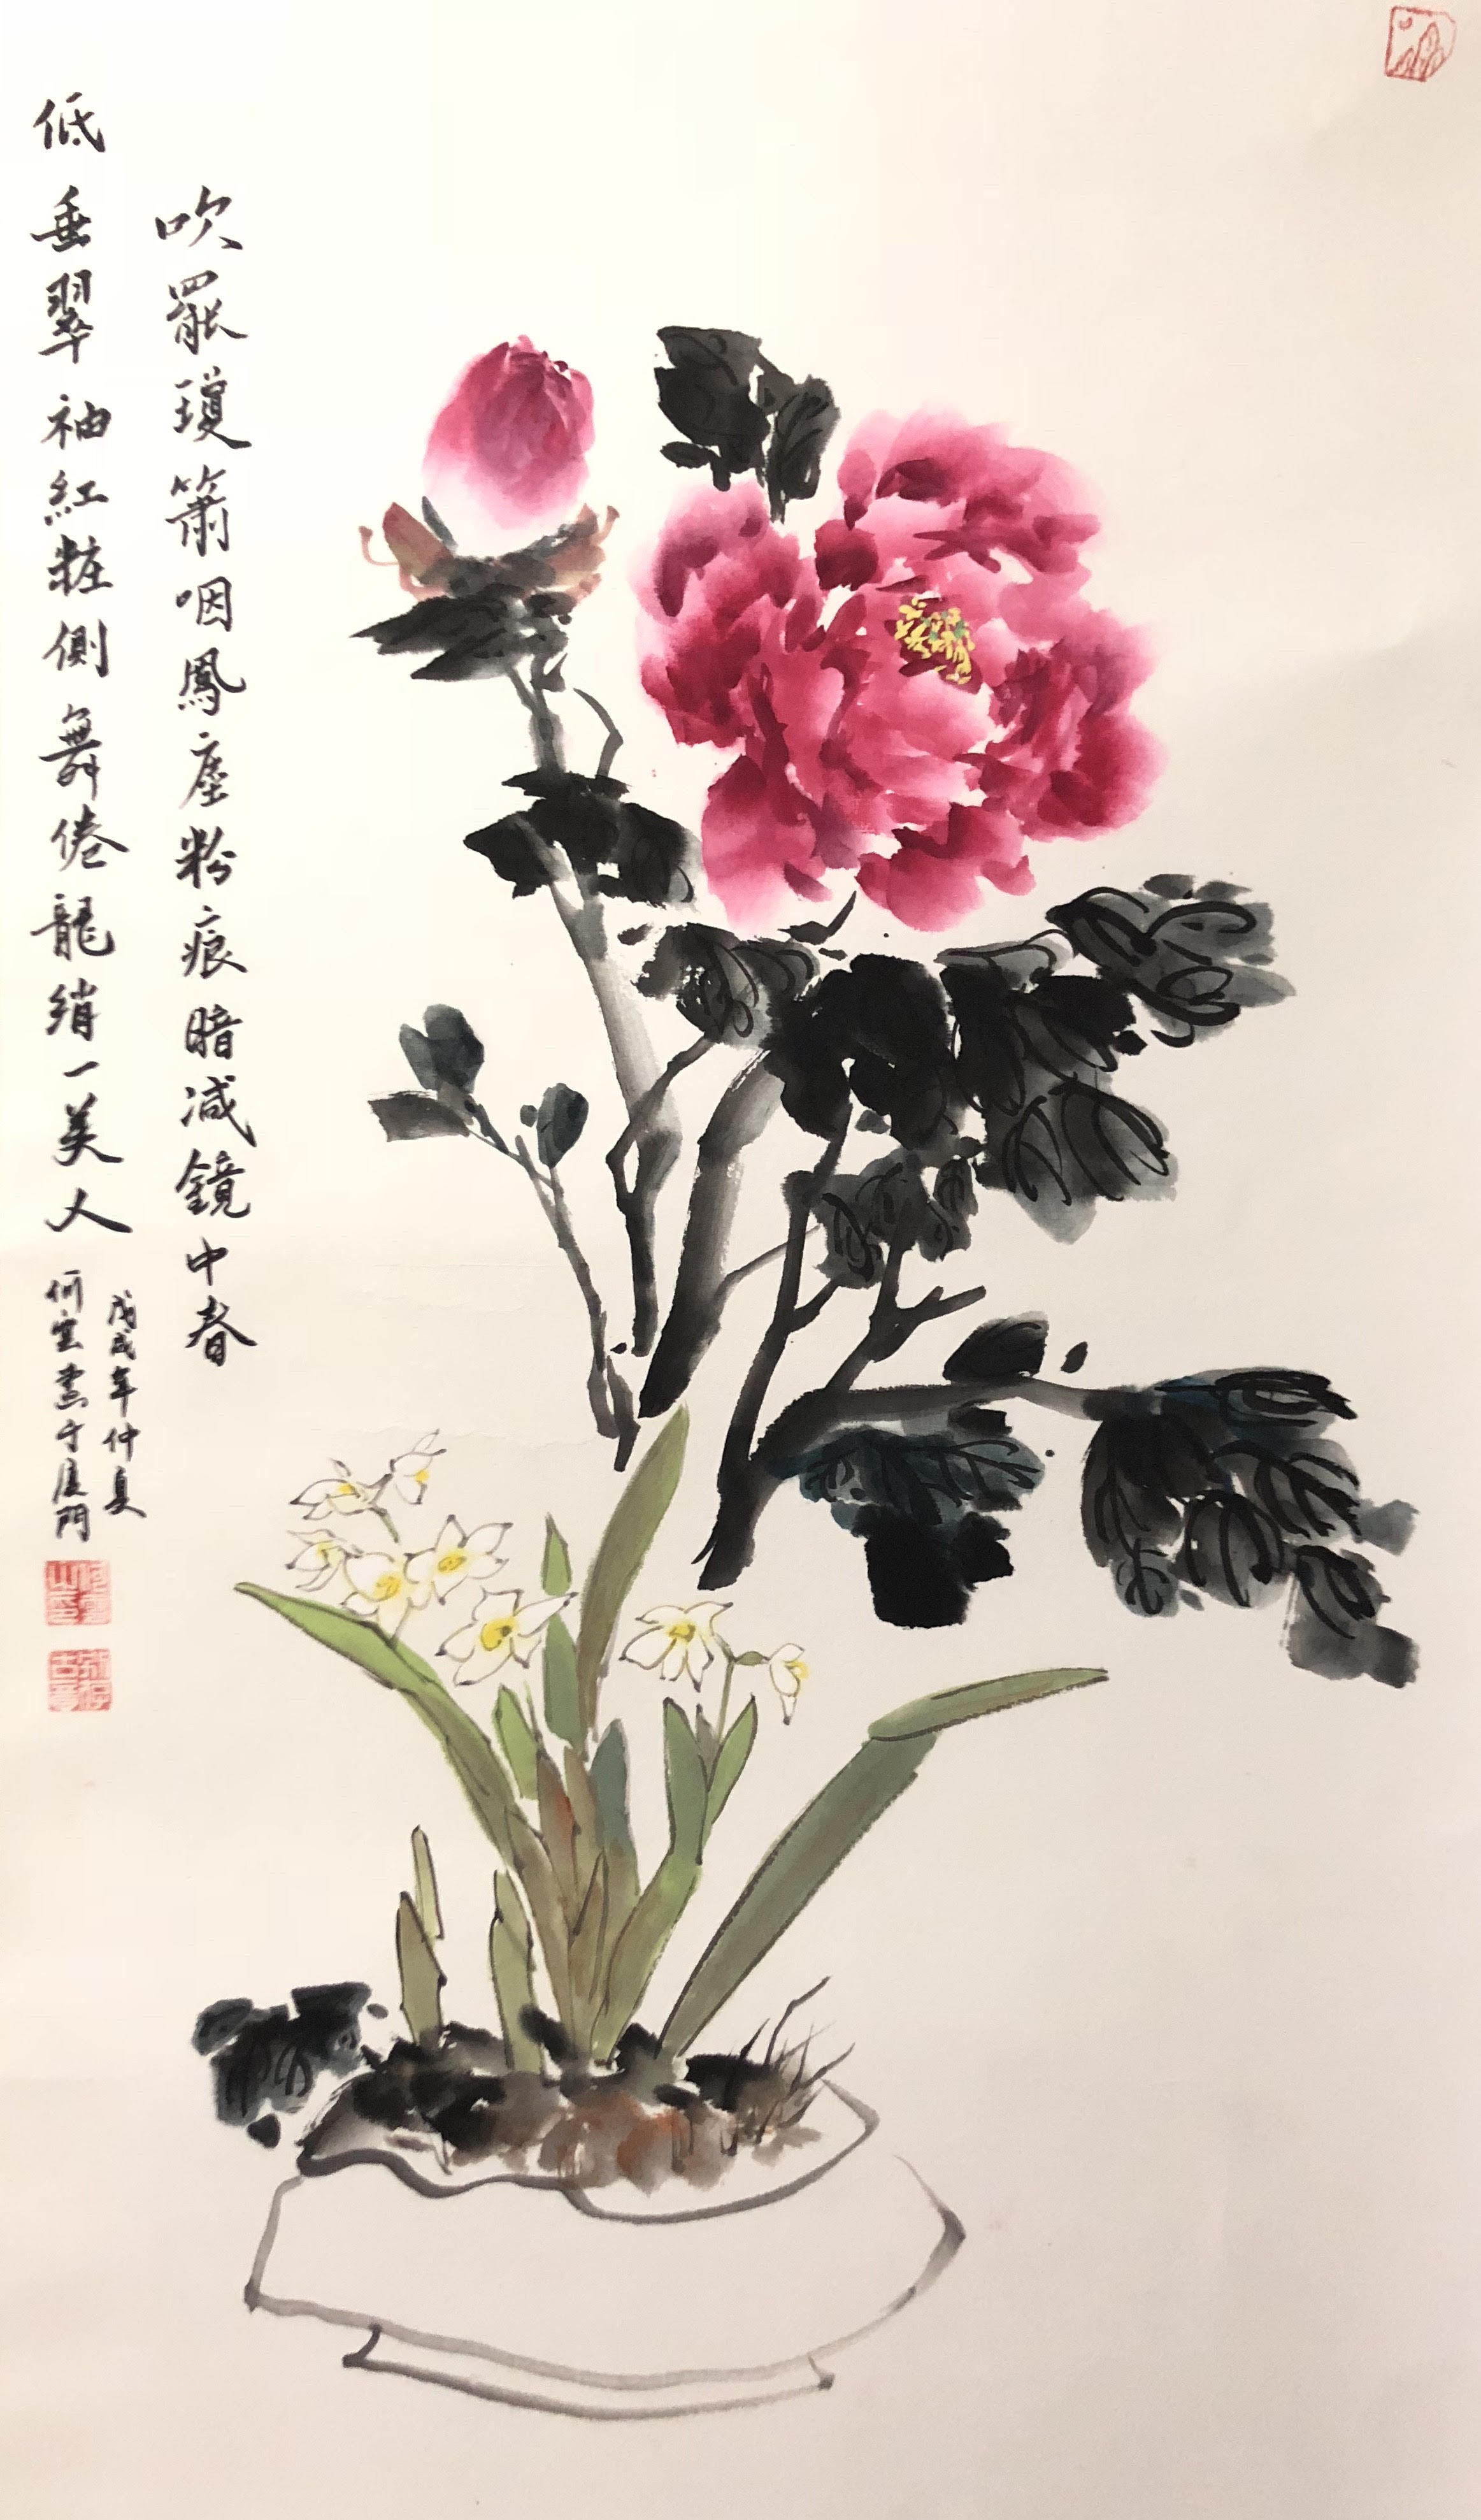 吹罷瓊簫咽鳳塵粉痕暗減鏡中春
低垂翠袖紅粧側舞倦龍綃一美人
戊戌年仲夏
何雲畫于厦門